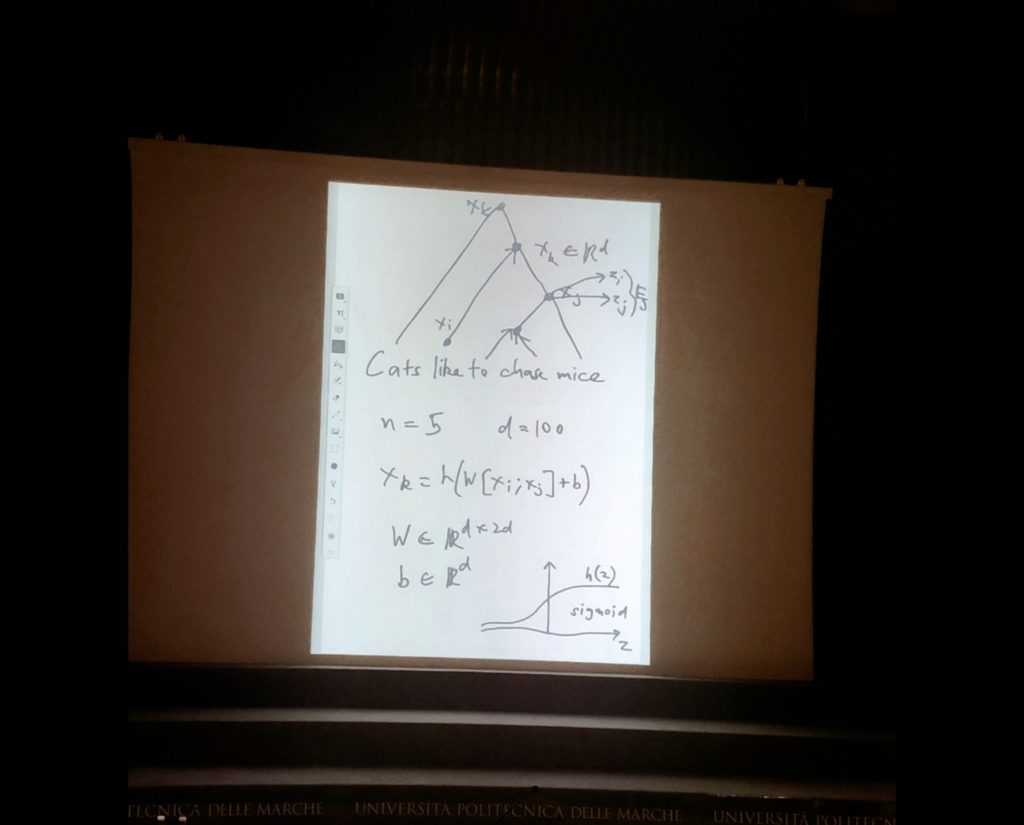 xk
xk ∈ ℝ^d
zi
xj
zj
xi
Cats like to chase mice
n = 5 d = 100
xk = h(W[xi; xj] + b)
W ∈ ℝ^{d×2d}
b ∈ ℝ^d
h(z)
sigmoid
z
TECNICA DELLE MARCHE UNIVERSITÀ POLITECNICA DELLE MARCHE UNIVERSITÀ POLITECN